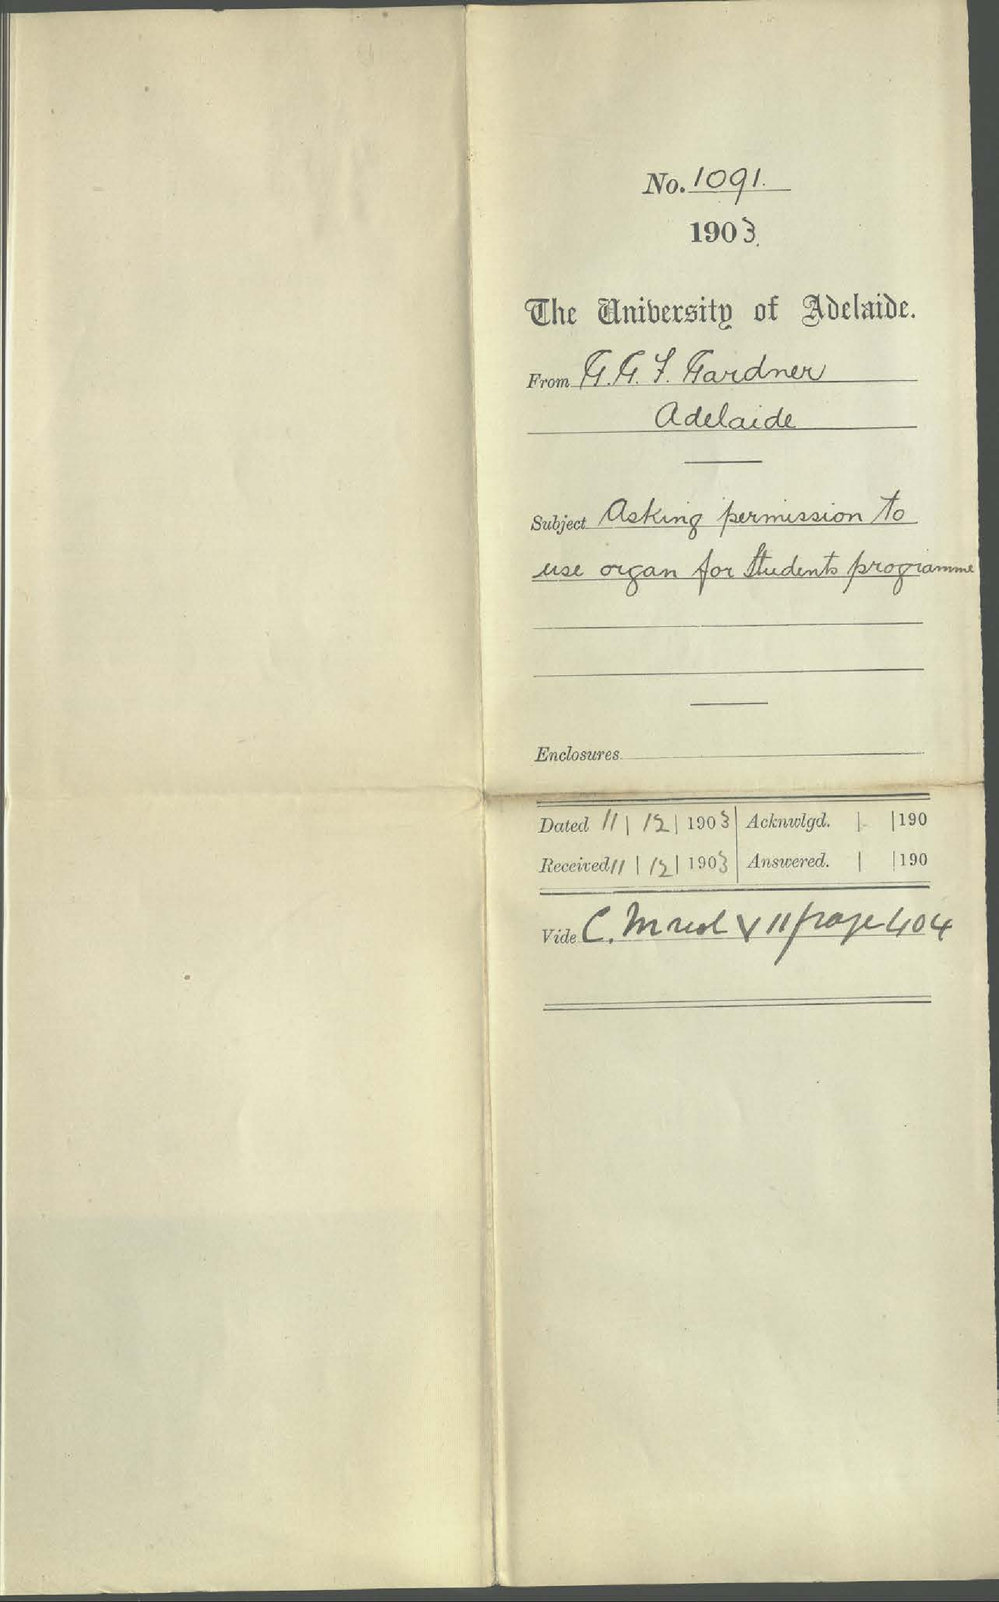 No. 1091.
1903.
The University of Adelaide.
From G. G. F. Gardner
Adelaide
Subject Asking permission to
use organ for Students programme
Enclosures.
Dated 11 | 12 | 1903 | Acknwlgd. | | 190
Received 11 | 12 | 1903 | Answered. | | 190
Vide C. M vol VII page 404